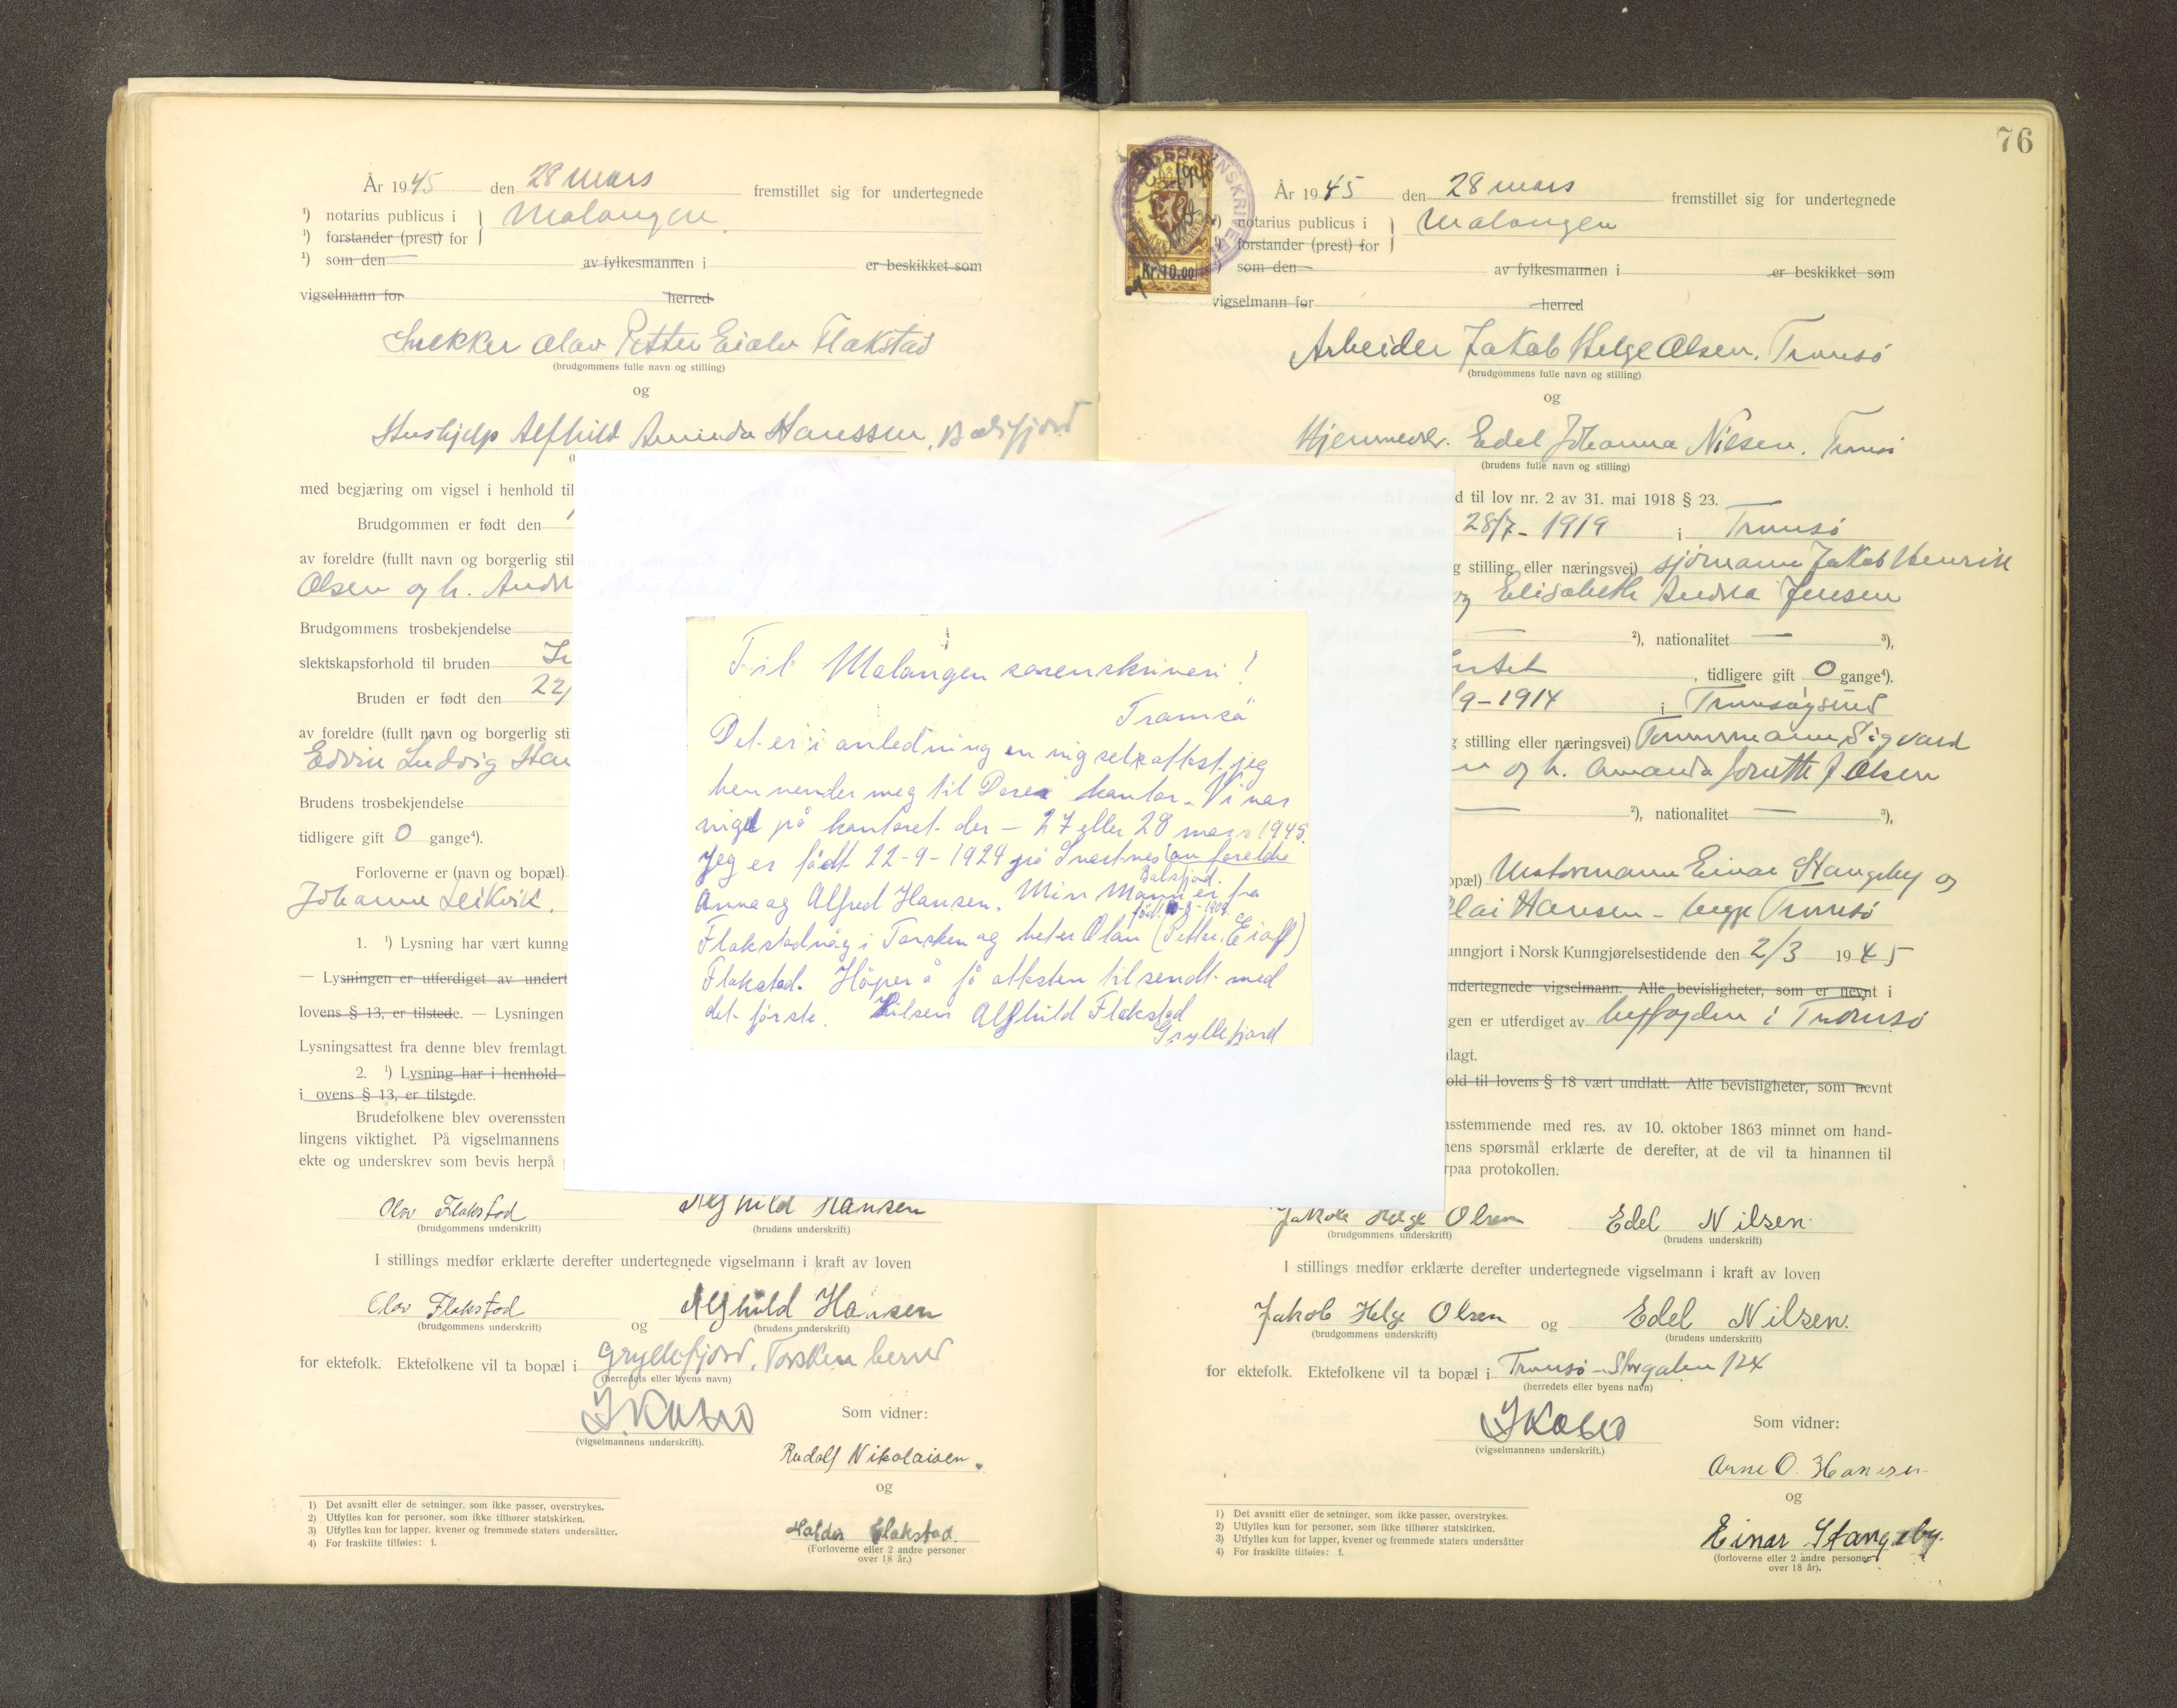 År 1945 den 28 mars fremstillet sig for undertegnede
¹) notarius publicus i } Malangen
¹) forstander (prest) for
¹) som den av fylkesmannen i er beskikket som
vigselmann for herred
Snekker Olav Petter Eialv Flakstad
(brudgommens fulle navn og stilling)
og
Hushjelp Alfhild Aminda Hanssen, Balsfjord
med begjæring om vigsel i henhold til
Brudgommen er født den
av foreldre (fullt navn og borgerlig stil
Olsen og h. Andr
Brudgommens trosbekjendelse
slektskapsforhold til bruden
Bruden er født den 22/
av foreldre (fullt navn og borgerlig sti
Edvin Ludvig Han
Brudens trosbekjendelse
tidligere gift 0 gange⁴).
Forloverne er (navn og bopæl)
Johanne Leikvik.
1. ¹) Lysning har vært kunng
— Lysningen er utferdiget av undert
lovens § 13, er tilstede. — Lysningen
Lysningsattest fra denne blev fremlagt.
2. ¹) Lysning har i henhold
i ovens § 13, er tilstede.
Brudefolkene blev overensstem
lingens viktighet. På vigselmannens
ekte og underskrev som bevis herpå
Olav Flakstad Alfhild Hansen
(brudgommens underskrift) (brudens underskrift)
I stillings medfør erklærte derefter undertegnede vigselmann i kraft av loven
Olav Flakstad og Alfhild Hansen
(brudgommens underskrift) (brudens underskrift)
for ektefolk. Ektefolkene vil ta bopæl i Gryllefjord, Torsken herred
(herredets eller byens navn)
Som vidner:
(vigselmannens underskrift).
Rudolf Nikolaisen.
og
Haldor Flakstad.
(Forloverne eller 2 andre personer
over 18 år.)
1) Det avsnitt eller de setninger, som ikke passer, overstrykes.
2) Utfylles kun for personer, som ikke tilhører statskirken.
3) Utfylles kun for lapper, kvener og fremmede staters undersåtter.
4) For fraskilte tilføies: f.
Til Malangen sorenskriveri!
Tromsö
Det er i anledning en vigselsattest jeg
henvender meg til Deres kontor. Vi var
vigd på kontoret der – 27 eller 28 mars 1945.
Jeg er født 22-9-1924 på Svartnes av foreldre
Balsfjord.
Anna og Alfred Hansen. Min Mann er fra
Flakstadvåg i Torsken og heter Olav (Petter Eiolf)
Flakstad. Håper å få attesten tilsendt med
det förste. Hilsen Alfhild Flakstad
Gryllefjord
76
Kr.10.00
År 1945 den 28 mars fremstillet sig for undertegnede
notarius publicus i } Malangen
forstander (prest) for
som den av fylkesmannen i er beskikket som
vigselmann for herred
Arbeider Jakob Helge Olsen, Tromsø
(brudgommens fulle navn og stilling)
og
Hjemmev. Edel Johanna Nilsen. Tromsø
(brudens fulle navn og stilling)
d til lov nr. 2 av 31. mai 1918 § 23.
28/7 - 1919 i Tromsø
g stilling eller næringsvei) sjømann Jakob Henrik
og Elisabeth Andrea Jensen
²), nationalitet — ³),
, tidligere gift 0 gange⁴).
/9 - 1914 i Tromsøysund
g stilling eller næringsvei) Tømmermann Sigvard
n og h. Amanda Jorette J Olsen
²), nationalitet — ³),
opæl) Einar Stangeby og
lai Hansen - begge Tromsø
unngjort i Norsk Kunngjørelsestidende den 2/3 1945
ndertegnede vigselmann. Alle bevisligheter, som er nevnt i
gen er utferdiget av byfogden i Tromsø
lagt.
old til lovens § 18 vært undlatt. Alle bevisligheter, som nevnt
sstemmende med res. av 10. oktober 1863 minnet om hand-
ens spørsmål erklærte de derefter, at de vil ta hinannen til
rpaa protokollen.
Jakob Helge Olsen Edel Nilsen.
(brudgommens underskrift) (brudens underskrift)
I stillings medfør erklærte derefter undertegnede vigselmann i kraft av loven
Jakob Helge Olsen og Edel Nilsen.
(brudgommens underskrift) (brudens underskrift)
for ektefolk. Ektefolkene vil ta bopæl i Tromsø - Storgaten 124
(herredets eller byens navn)
Som vidner:
(vigselmannens underskrift.)
Arne O. Hansen
og
Einar Stangeby.
(forloverne eller 2 andre personer
over 18 år).
1) Det avsnitt eller de setninger, som ikke passer, overstrykes.
2) Utfylles kun for personer, som ikke tilhører statskirken.
3) Utfylles kun for lapper, kvener og fremmede staters undersåtter
4) For fraskilte tilføies: f.